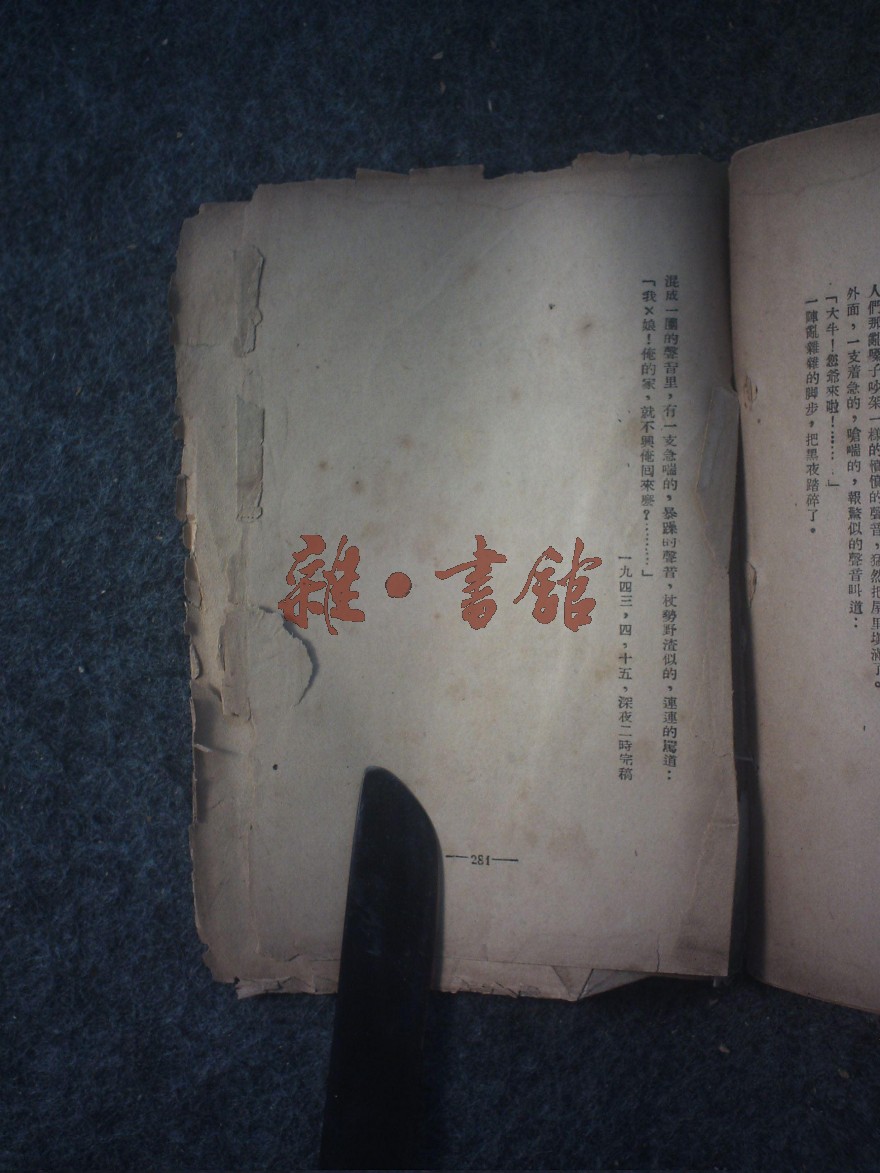 人們那亂嗓子吵架一樣的憤憤的聲音，猛然把屋里填滿了。
外面，一支着急的，嗆喘的，報警似的聲音叫道：
「大牛！您爺來啦！………」
一陣亂雜雜的脚步，把黑夜踏碎了。
混成一團的聲音里，有一支急喘的，暴躁的聲音，杖勢野渣似的，連連的罵道：
「我×娘！俺的家，就不興俺囘來麽？…………」
一九四三，四，十五，深夜二時完稿
—281—
雜·書館